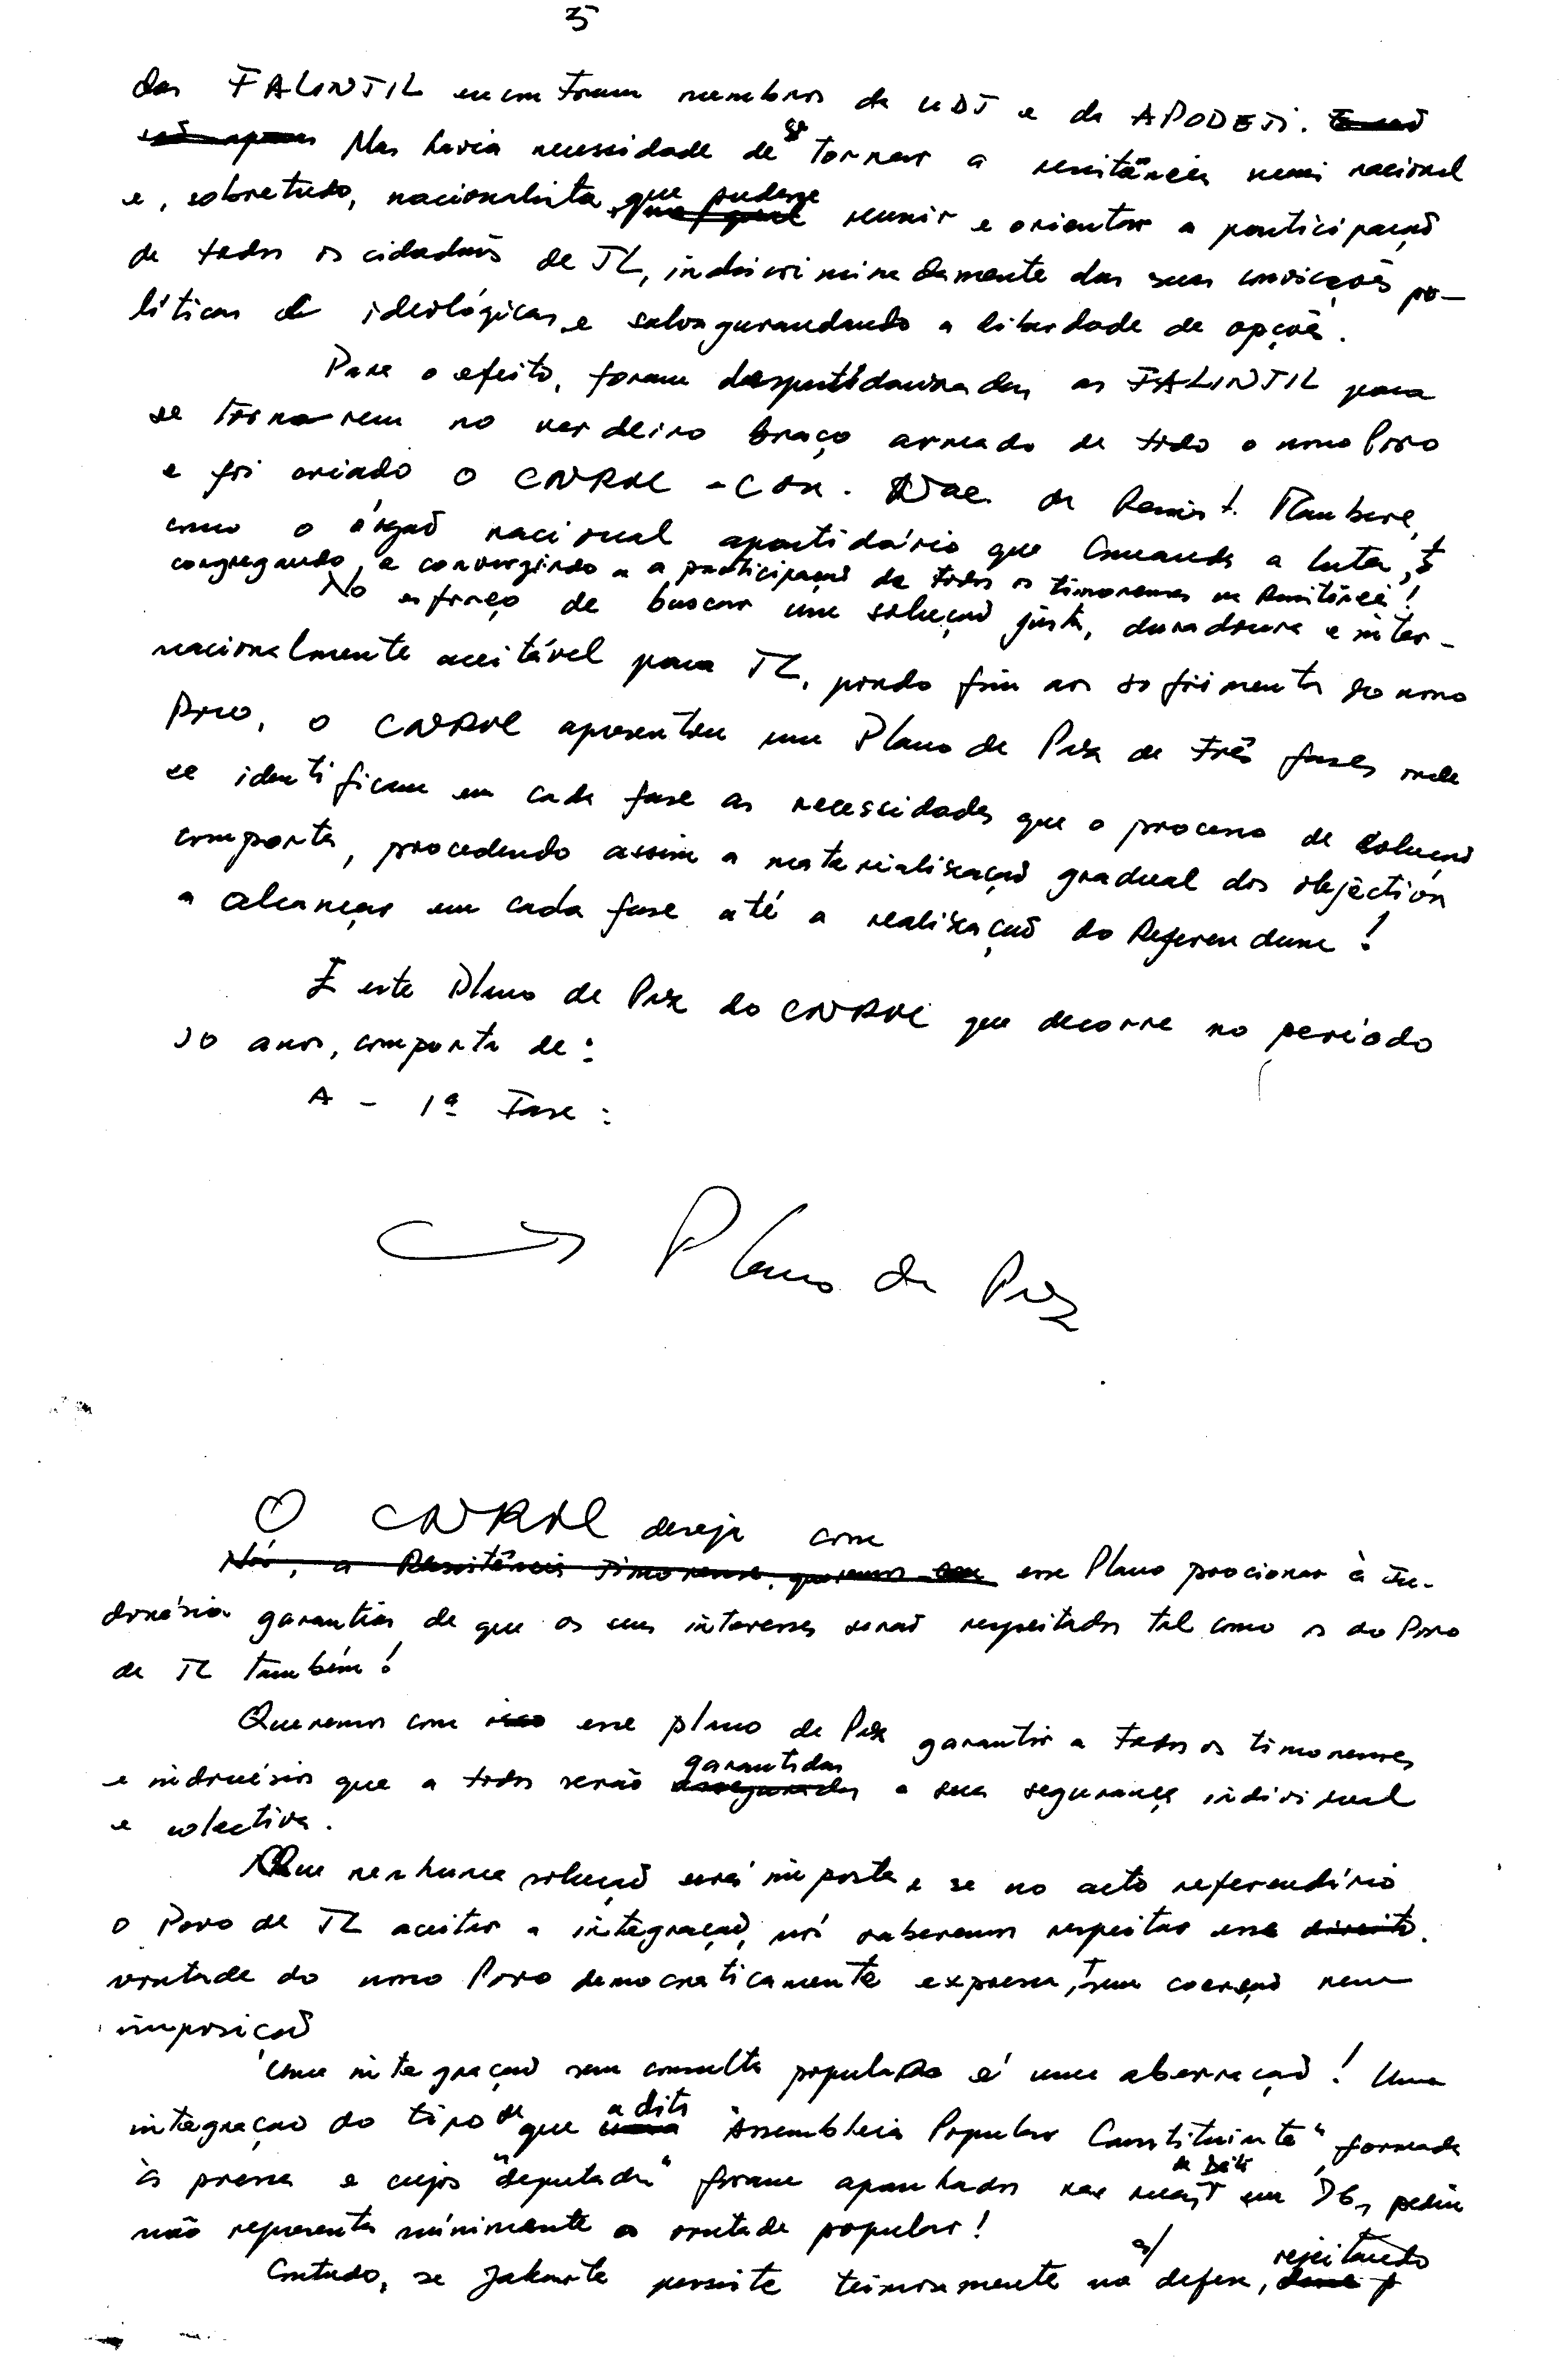 5
das FALINTIL encontram membros da UDT e da APODETI.
Mas havia necessidade de se tornar a resistência mais nacional
e, sobretudo, nacionalista que pudesse reunir e orientar a participação
de todos os cidadãos de TL, indiscriminadamente das suas convicções po-
líticas ideológicas e salvaguardando a liberdade de opções.
Para o efeito, foram despartidarizadas as FALINTIL para
se tornarem no verdeiro braço armado de todo o nosso Povo
e foi criado o CNRM - Con. Nac. da Resist. Maubere,
como o órgão nacional apartidário que comanda a luta,
congregando e convergindo a participação de todos os timorenses na Resistência!
No esforço de buscar uma solução justa, duradoura e inter-
nacionalmente aceitável para TL, pondo fim aos sofrimentos do nosso
Povo, o CNRM apresentou um Plano de Paz de três fases onde
se identificam em cada fase as necessidades que o processo de solução
comporta, procedendo assim a materialização gradual dos objectivos
a alcançar em cada fase até a realização do Referendum!
E este Plano de Paz do CNRM que decorre no período
10 anos, comporta de:
A - 1ª Fase:
Plano de Paz
O CNRM deseja com
Nós, a Resistência Timorense, queremos com esse Plano procionar à In-
donésia garantias de que os seus interesses serão respeitados tal como os do Povo
de TL também!
Queremos com isso esse plano de Paz garantir a todos os timorenses
garantidas
e indonésios que a todos serão asseguradas a sua segurança individual
e colectiva.
Que nenhuma solução será imposta e se no acto referendário
o Povo de TL aceitar a integração, nós saberemos respeitar essa direito.
vontade do nosso Povo democraticamente expressa, sem coerção nem
imposição
Uma integração sem consulta popular é uma aberração! Uma
integração do tipo de que a dita "Assembleia Popular Constituinte", formada
às pressas e cujos "deputados" foram apanhados nas de Dili em 76, pediu
não representa minimente a vontade popular!
Contudo, se Jakarta persiste teimosamente na defesa, rejeitando